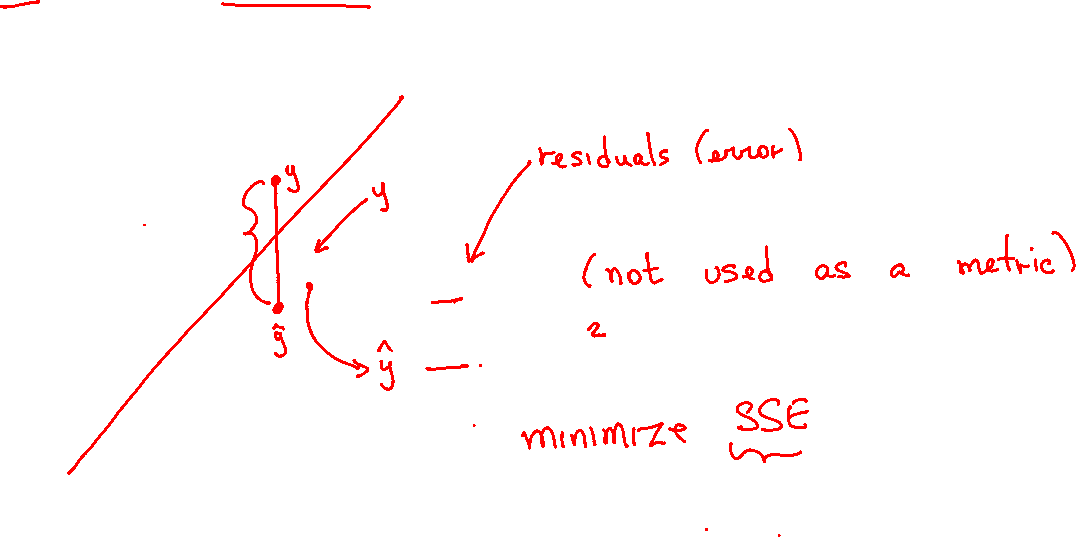 residuals (error)
y
y
(not used as a metric)
2
ŷ
ŷ
minimize SSE